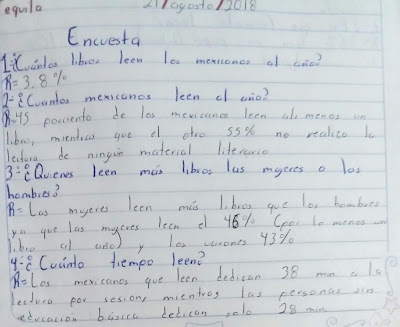 equila 21/agosto/2018
Encuesta
1-¿Cuántos libros leen los mexicanos al año?
R= 3.8%
2-¿Cuantos mexicanos leen al año?
R-45 porciento de los mexicanos leen al menos un
libro, mientras que el otro 55% no realiza la
lectura de ningún material literario
3-¿Quienes leen más libros las mujeres o los
hombres?
R= Las mujeres leen más libros que los hombres
ya que las mujeres leen el 46% (por lo menos un
libro al año) y los varones 43%
4-¿Cuánto tiempo leen?
R= Los mexicanos que leen dedican 38 min a la
lectura por sesion, mientras las personas sin
educación básica dedican solo 28 min